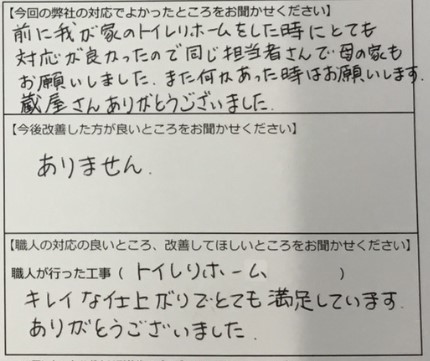 【今回の弊社の対応でよかったところをお聞かせください】
前に我が家のトイレリホームをした時にとても
対応が良かったので同じ担当者さんで母の家も
お願いしました。また何かあった時はお願いします。
蔵屋さんありがとうございました。
【今後改善した方が良いところをお聞かせください】
ありません。
【職人の対応の良いところ、改善してほしいところをお聞かせください】
職人が行った工事（ トイレリホーム ）
キレイな仕上がりでとても満足しています。
ありがとうございました。